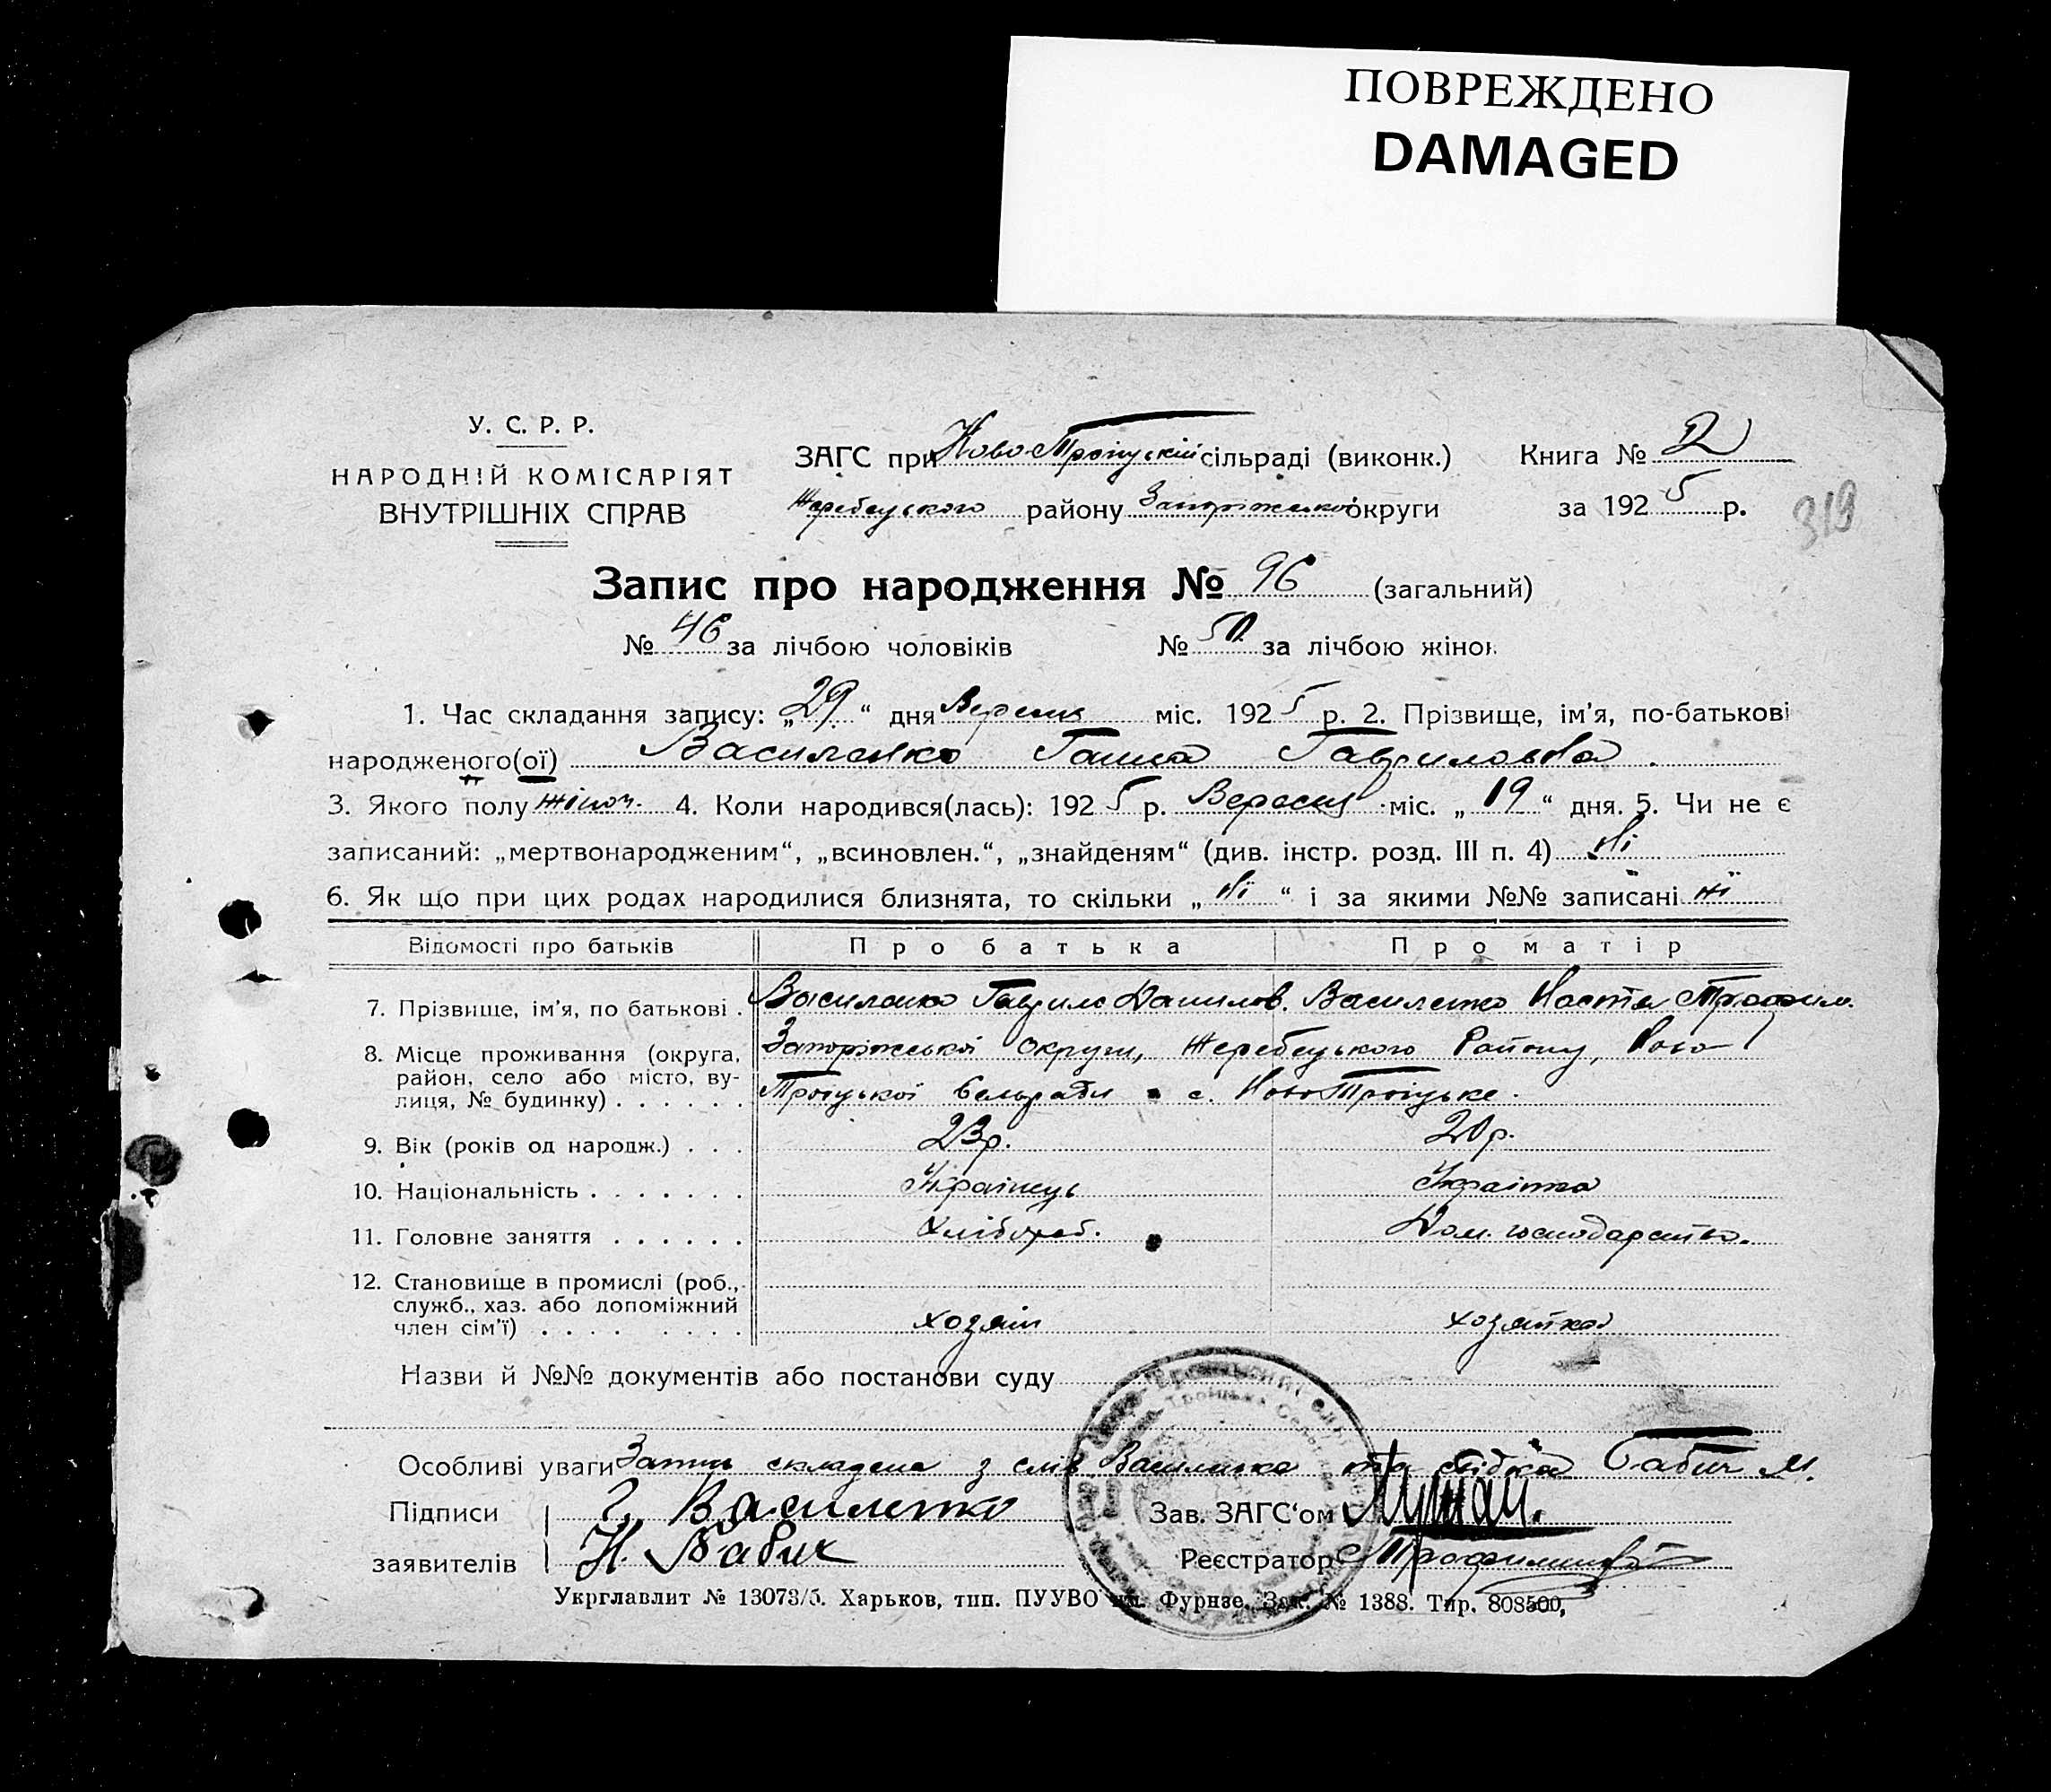 ПОВРЕЖДЕНО
DAMAGED
У. С. Р. Р.
НАРОДНІЙ КОМІСАРІЯТ
ВНУТРІШНІХ СПРАВ
ЗАГС при Ново-Троїцькій сільраді (виконк.) Книга № 2
Жеребецького району Запоріжської округи за 1925 р.
319
Запис про народження № 96 (загальний)
№ 46 за лічбою чоловіків № 50 за лічбою жінок
1. Час складання запису: „29“ дня Вересня міс. 1925 р. 2. Прізвище, ім'я, по-батькові
народженого(ої) Василенко Ганна Гавриловна.
3. Якого полу жіноч. 4. Коли народився(лась): 1925 р. Вересня міс. „19“ дня. 5. Чи не є
записаний: „мертвонародженим“, „всиновлен.“, „знайденям“ (див. інстр. розд. III п. 4) Ні
6. Як що при цих родах народилися близнята, то скільки „ні“ і за якими №№ записані ні
Відомості про батьків Про батька Про матір
7. Прізвище, ім'я, по батькові . Василенко Гаврило Данилов. Василенко Настя Трофим.
8. Місце проживання (округа, Запоріжської округи, Жеребецького Району, Ново
район, село або місто, ву-
лиця, № будинку) . . . . . . Троїцької Сельради с. НовоТроїцьке.
9. Вік (років од народж.) . . . 23р. 20р.
10. Національність . . . . . . . Українець Українка
11. Головне заняття . . . . . . Хлібороб. Дом. господарство.
12. Становище в промислі (роб.,
служб., хаз. або допоміжний
член сім'ї) . . . . . . . . хозяїн хозяйка
Назви й №№ документів або постанови суду
Особливі уваги Запис складено з слів Василенка та свідка Бабич М.
Підписи Г. Василенко Зав. ЗАГС‘ом
заявителів Н. Бабич Реєстратор
Укрглавлит № 13073/5. Харьков, тип. ПУУВО им. Фурнзе. Зак. № 1388. Тир. 808500,